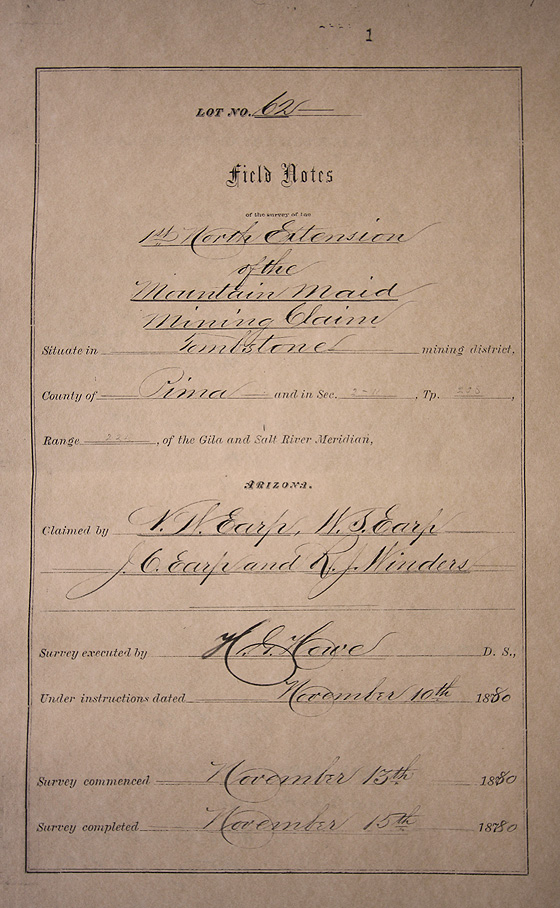 1
LOT NO. 62
Field Notes
of the survey of the
1st North Extension
of the
Mountain Maid
Mining Claim
Situate in Tombstone mining district,
County of Pima and in Sec. , Tp. ,
Range , of the Gila and Salt River Meridian,
ARIZONA.
Claimed by V. W. Earp, W. S. Earp
J. C. Earp and R. J. Winders
Survey executed by H. G. Howe D. S.,
Under instructions dated November 10th 1880
Survey commenced November 13th 1880
Survey completed November 15th 1880